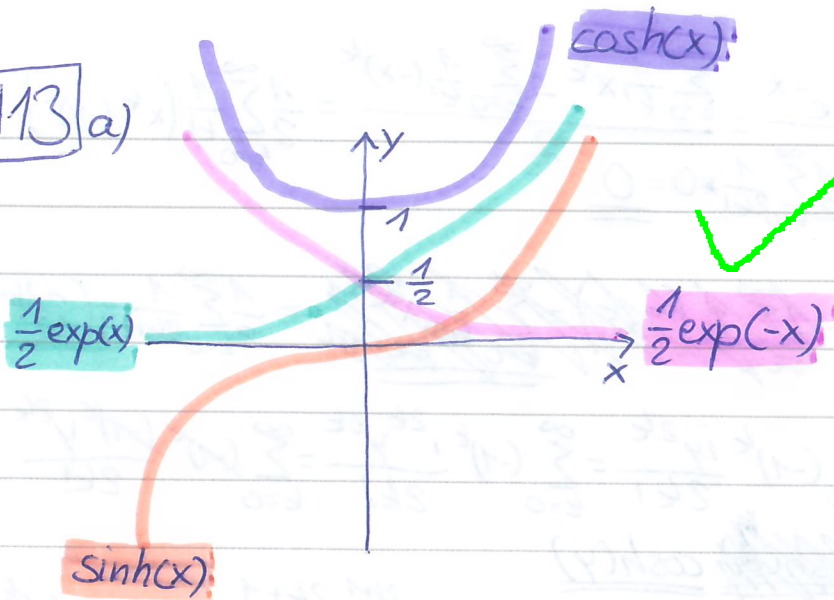 cosh(x)
113 a)
y
1
1/2
1/2 exp(x)
1/2 exp(-x)
x
sinh(x)